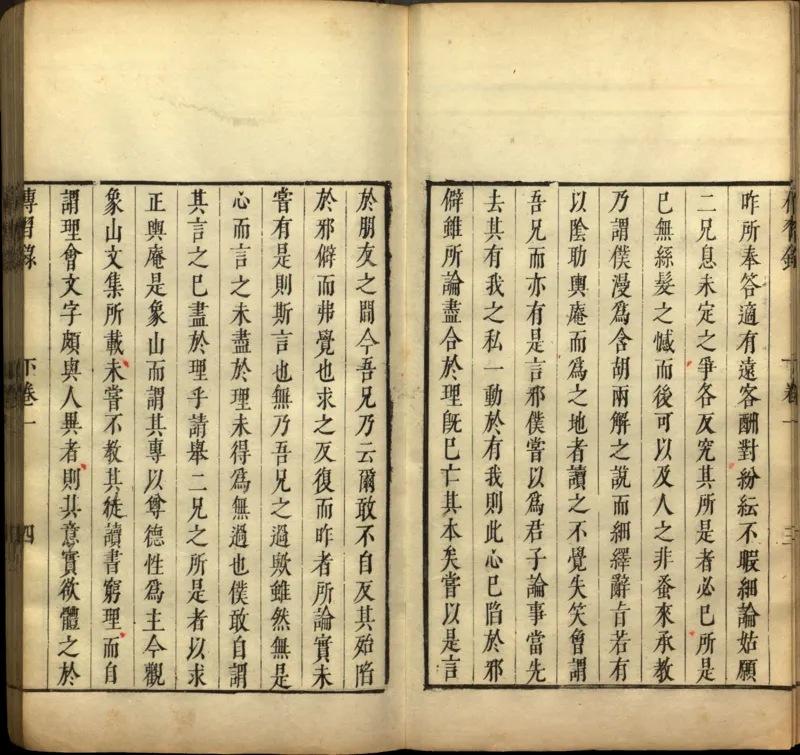 昨所奉答適有遠客酬對紛紜不暇細論姑願
二兄息未定之爭各反究其所是者必巳所是
巳無絲髮之憾而後可以及人之非蚤來承教
乃謂僕漫為含胡兩解之說而細繹辭旨若有
以陰助輿庵而為之地者讀之不覺失笑曾謂
吾兄而亦有是言邪僕嘗以為君子論事當先
去其有我之私一動於有我則此心巳陷於邪
僻雖所論盡合於理既巳亡其本矣嘗以是言
於朋友之間今吾兄乃云爾敢不自反其殆陷
於邪僻而弗覺也求之反復而昨者所論實未
嘗有是則斯言也無乃吾兄之過歟雖然無是
心而言之未盡於理未得為無過也僕敢自謂
其言之巳盡於理乎請舉二兄之所是者以求
正輿庵是象山而謂其專以尊德性為主今觀
象山文集所載未嘗不教其徒讀書窮理而自
謂理會文字頗與人異者則其意實欲體之於
傳習錄 下卷一 四